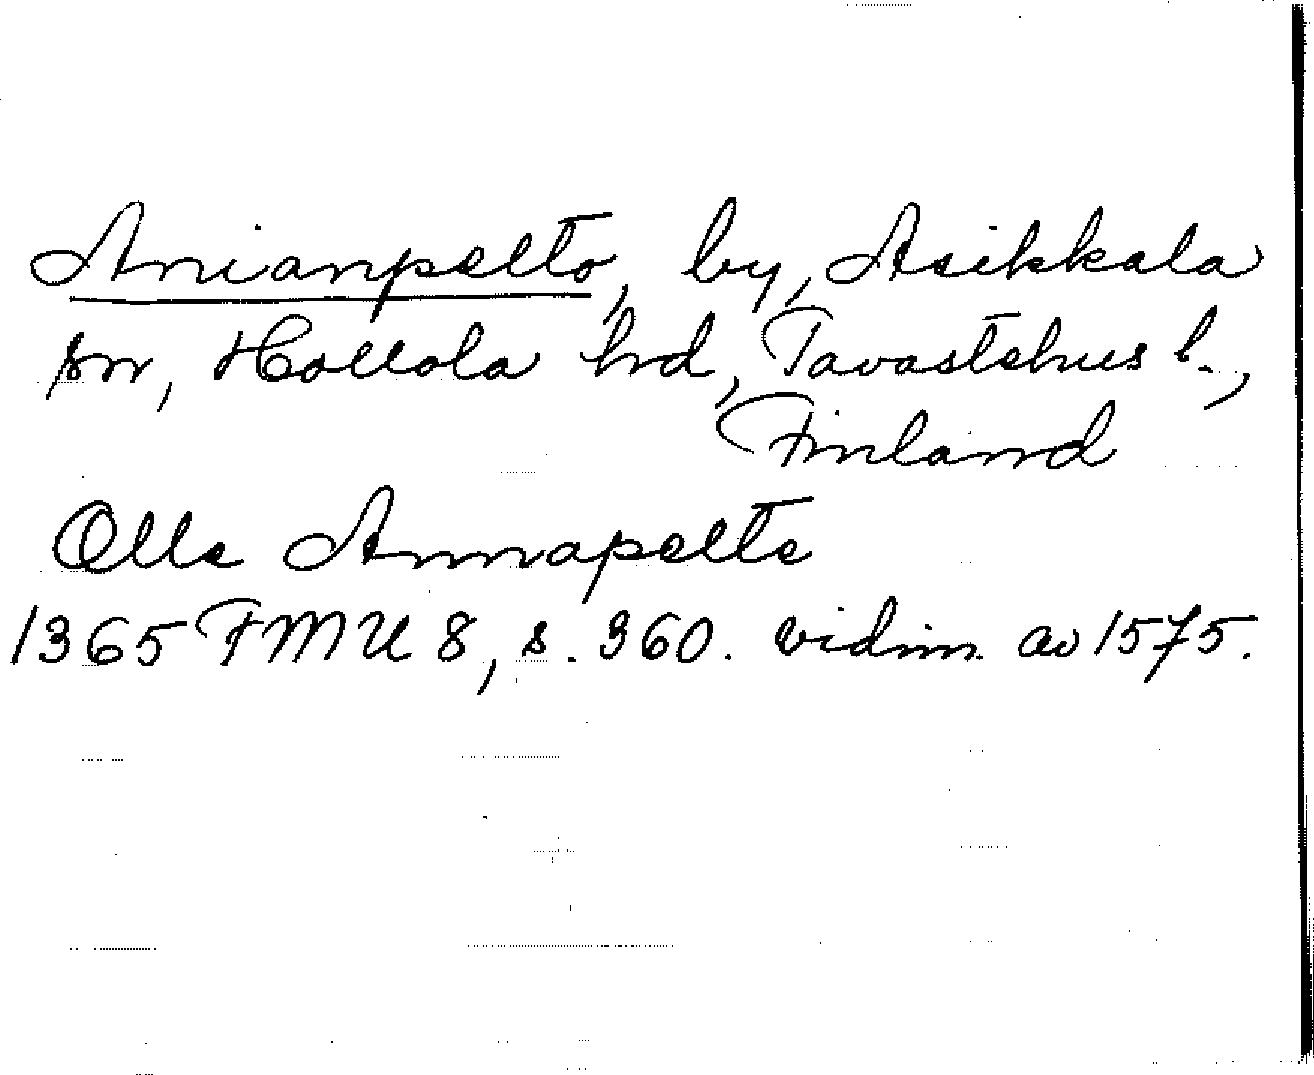 Anianpelto, by, Asikkala
sn, Hollola hrd, Tavastehus l.,
Finland
Olle Annapelte
1365 FMU 8, s. 360. vidim. av 1575.